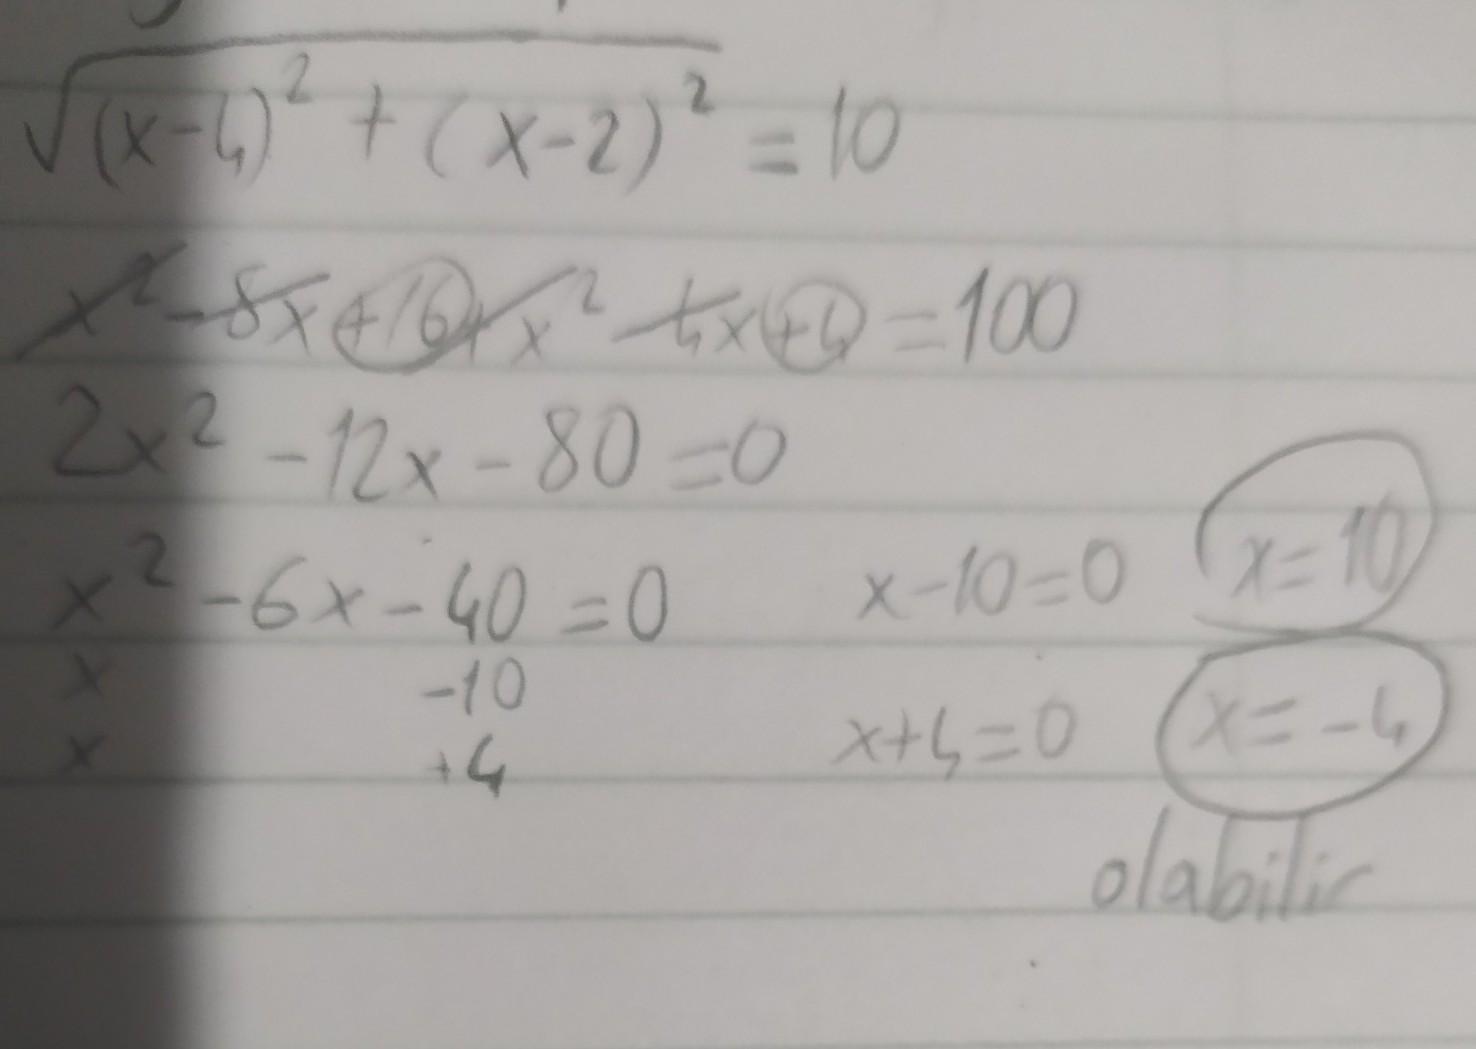 √(x-4)² + (x-2)² = 10
x² - 8x + 16 + x² - 4x + 4 = 100
2x² - 12x - 80 = 0
x² - 6x - 40 = 0
x -10
x +4
x - 10 = 0 x = 10
x + 4 = 0 x = -4
olabilir